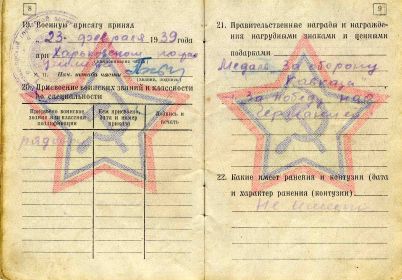 8
19. Военную присягу принял
"23" февраля 1939 года
при Харьковском
М. П. Нач. штаба части
(звание, подпись)
20. Присвоение воинских званий и классности
по специальности
Присвоено воинское звание или классная квалификация
Кем присвоено, дата и номер приказа
Подпись и печать
рядовой
9
21. Правительственные награды и награждения нагрудными знаками и ценными
подарками
Медаль За оборону
Кавказа
За Победу над
Германией
22. Какие имеет ранения и контузии (дата
и характер ранения (контузии)
Не имеет